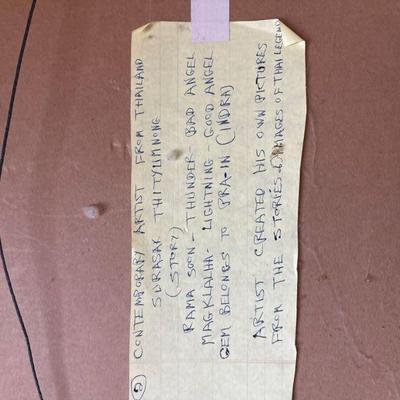 ② CONTEMPORARY ARTIST FROM THAILAND
SURASAK THITYUMNONG
(STORY)
RAMA SOON - THUNDER - BAD ANGEL
MAGKLALHA - LIGHTNING - GOOD ANGEL
GEM BELONGS TO PRA-IN (INDRA)
ARTIST CREATED HIS OWN PICTURES
FROM THE STORIES & IMAGES OF THAI LEGEND